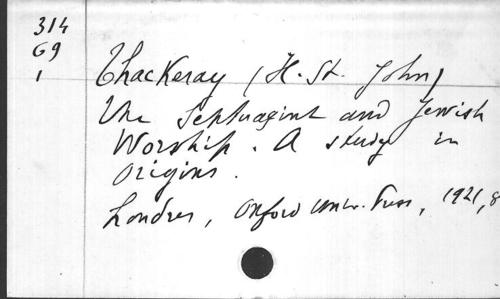 314
G9
1
Thackeray (H. St. John)
The Septuagint and Jewish
Worship. A study in
Origins.
Londres, Oxford Univ. Press, 1921, 8